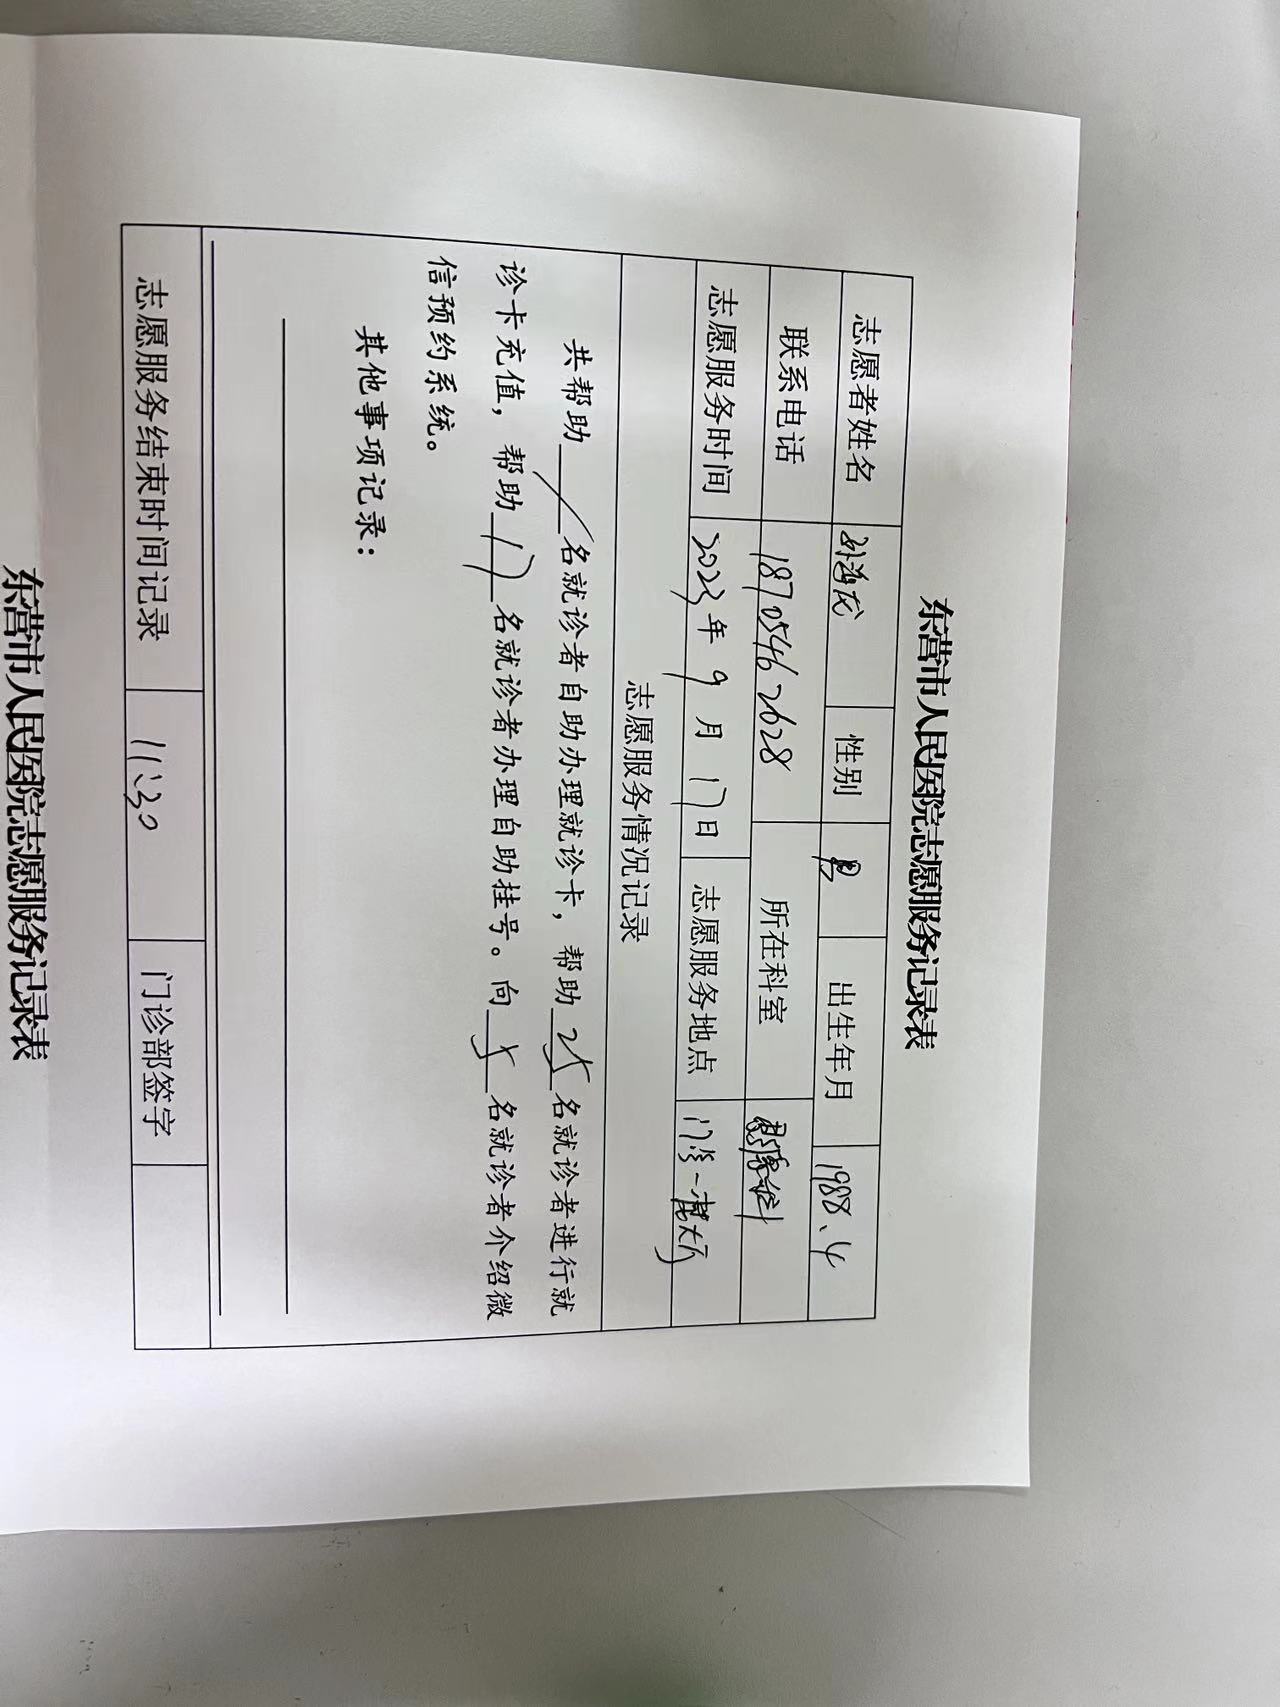 东营市人民医院志愿服务记录表
志愿者姓名 性别 男 出生年月 1988.4
联系电话 18705462628 所在科室 影像科
志愿服务时间 2023年9月17日 志愿服务地点 门诊一楼大厅
志愿服务情况记录
共帮助 / 名就诊者自助办理就诊卡，帮助 25 名就诊者进行就
诊卡充值，帮助 17 名就诊者办理自助挂号。向 5 名就诊者介绍微
信预约系统。
其他事项记录：
志愿服务结束时间记录 11:30 门诊部签字
东营市人民医院志愿服务记录表